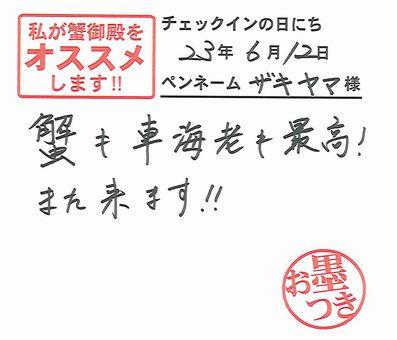 私が蟹御殿を
オススメ
します!!
チェックインの日にち
23年6月12日
ペンネーム ザキヤマ様
蟹も車海老も最高!
また来ます!!
お墨つき